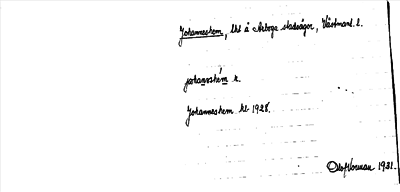 Johanneshem, lht å Arboge stadsägor, Västmanl. l.
johannәshém r.
Johanneshem kt 1928.
Olof Norman 1931.